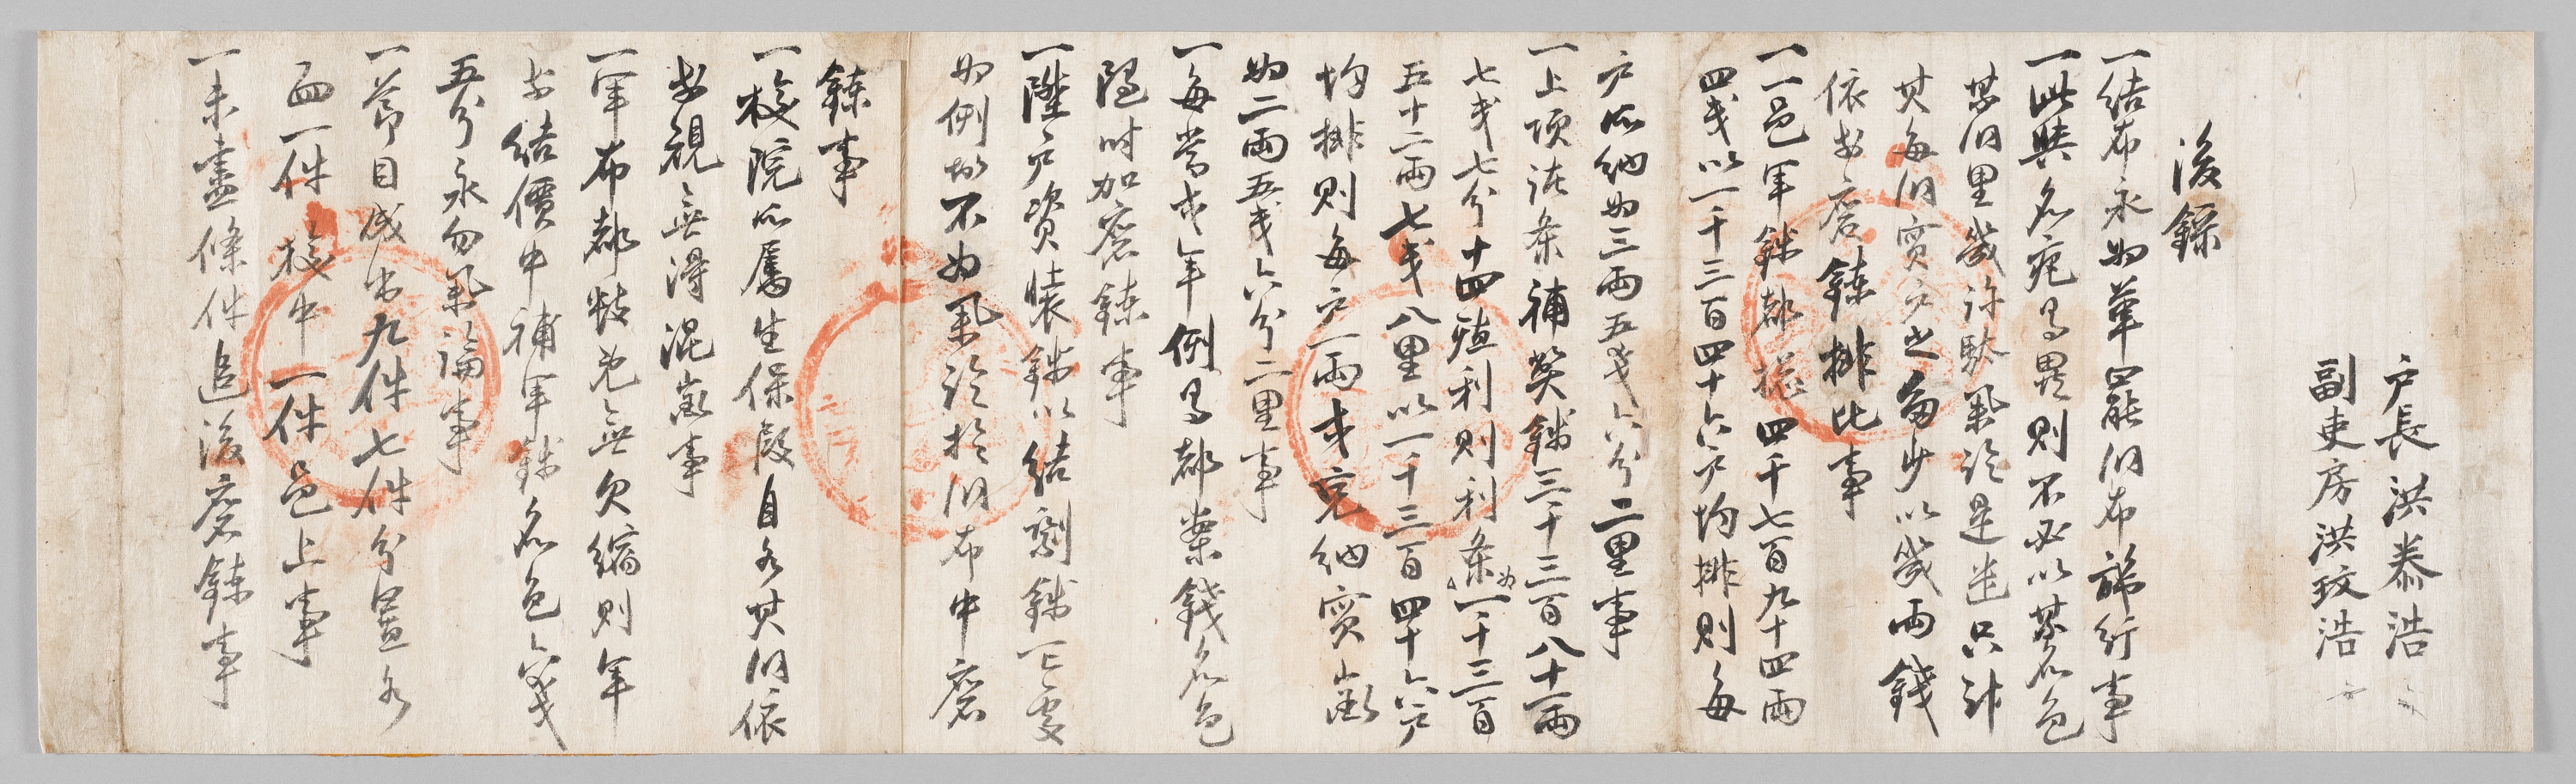 戶長 洪泰浩
副吏房 洪玟浩
後錄
一結布永爲革罷洞布施行事
一此與名疤多異則不必以某名色
某洞里幾許駄畢論是遣只計
其每洞實戶之多少以幾兩錢
依井磨鍊排比事
一一邑軍錢都摠四千七百九十四兩
四戔以一千三百四十六戶均排則每
戶所納爲三兩五戔六分二里事
一上項諸條補弊錢三千三百八十一兩
七戔七分十四殖利則利條爲一千三百
五十二兩七戔八里以一千三百四十六戶
均排則每戶一兩式完納實
爲二兩五戔六分二里事
一每當式年例多都案錢名色
隨時加磨鍊事
一陞戶資裝錢以結劃錢上下
爲例故不爲畢論於洞布中磨
鍊事
一校院所屬生保段自各其洞依
前視無得混 事
一軍布都數免無欠縮則年
前結價中補軍錢名色六戔
五分永勿畢論事
一節目成出九件七件分置各
面一件校中一件邑上事
一未盡條件追後磨鍊事